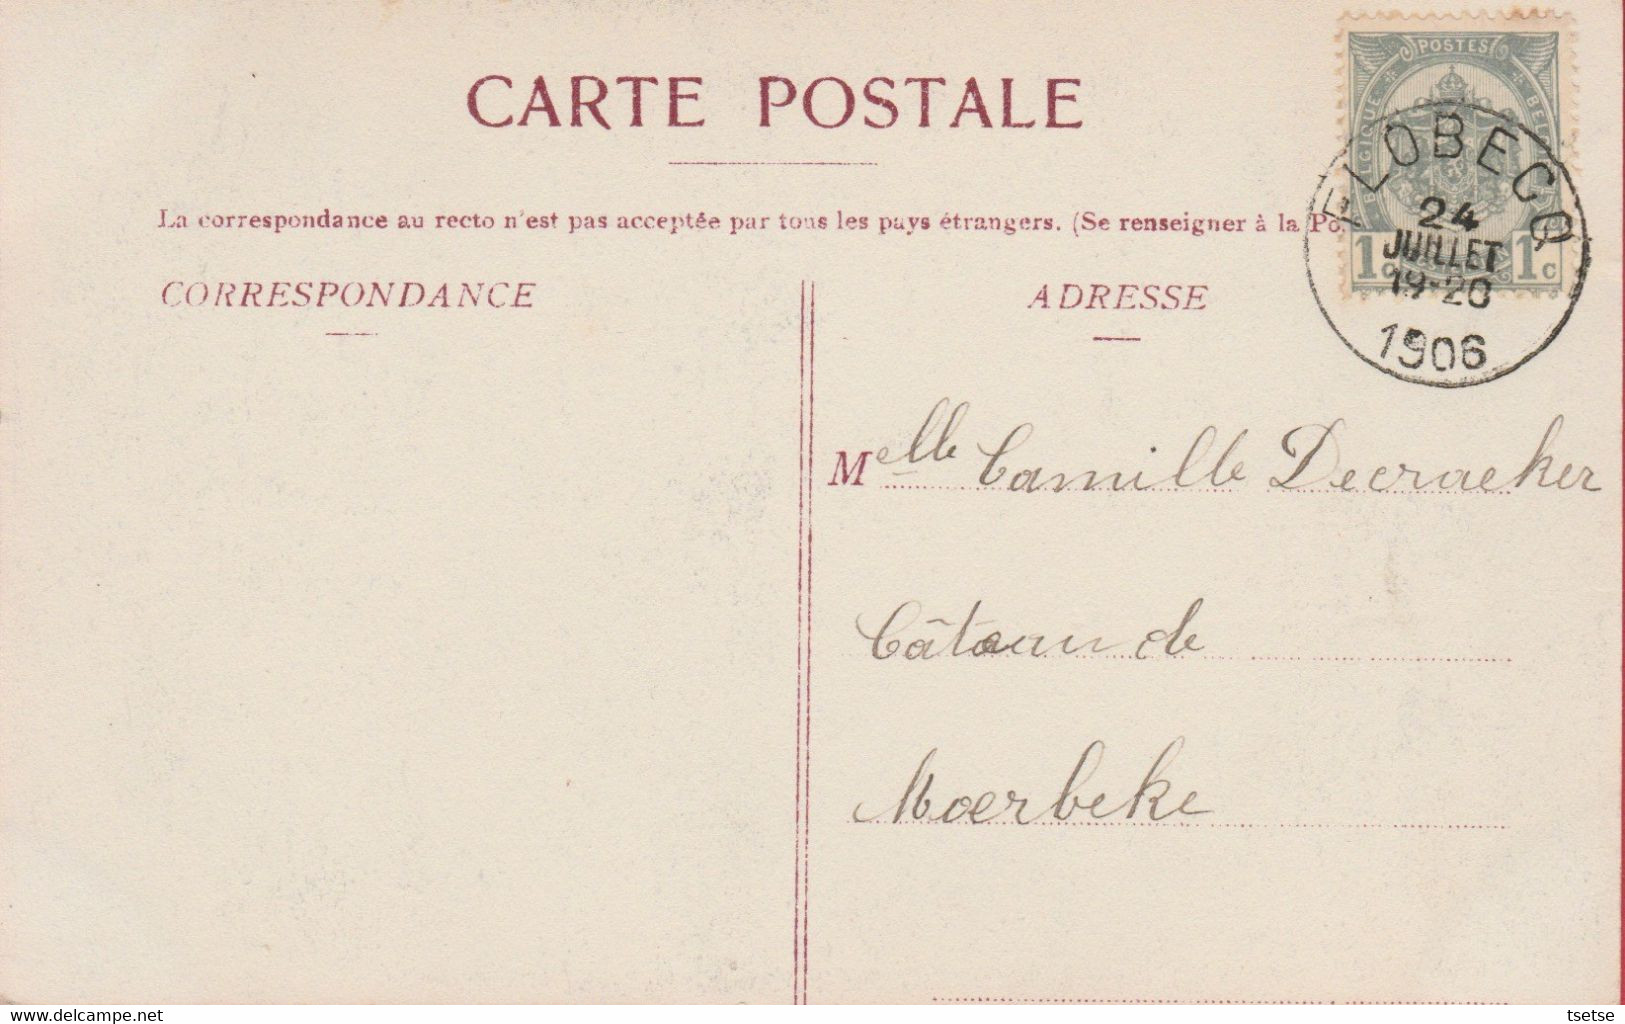 CARTE POSTALE
POSTES
La correspondance au recto n'est pas acceptée par tous les pays étrangers. (Se renseigner à la Po
ELLOBECQ
24
JUILLET
19-20
1906
1c 1c
CORRESPONDANCE
ADRESSE
Melle Camille Decraeker
Câteau de
Moerbeke
delcampe.net
tsetse